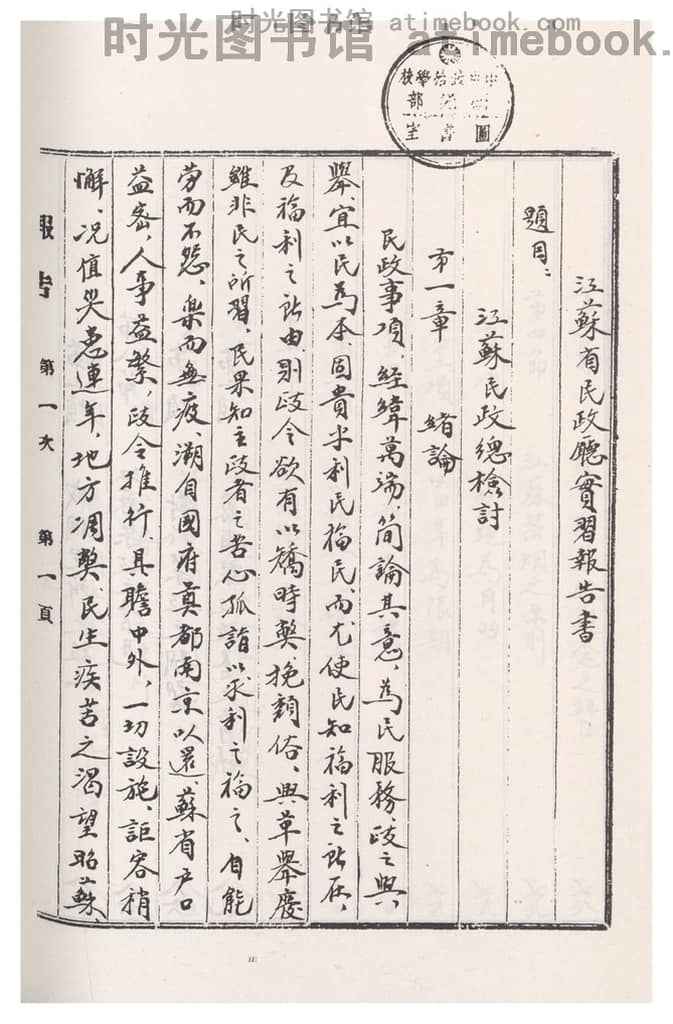 时光图书馆 atimebook.com
时光图书馆 atimebook.
中央政治學校
部
圖書室
江蘇省民政廳實習報告書
題目：
江蘇民政總檢討
第一章 緒論
民政事項、經緯萬端、簡論其意、為民服務、政之興、
舉、宜以民為本、固貴乎利民福民、而尤使民知福利之所在、
及福利之所由、則政令欲有以矯時弊、挽頹俗、興革舉廢
雖非民之所習、民果知主政者之苦心孤詣以求利之福之、自能
勞而不怨、樂而無疲、溯自國府奠都南京以還、蘇省戶口
益密、人事益繁、政令推行、具瞻中外、一切設施、詎容稍
懈、况值災患連年、地方凋弊、民生疾苦之渴望昭蘇、
報告 第一次 第一頁